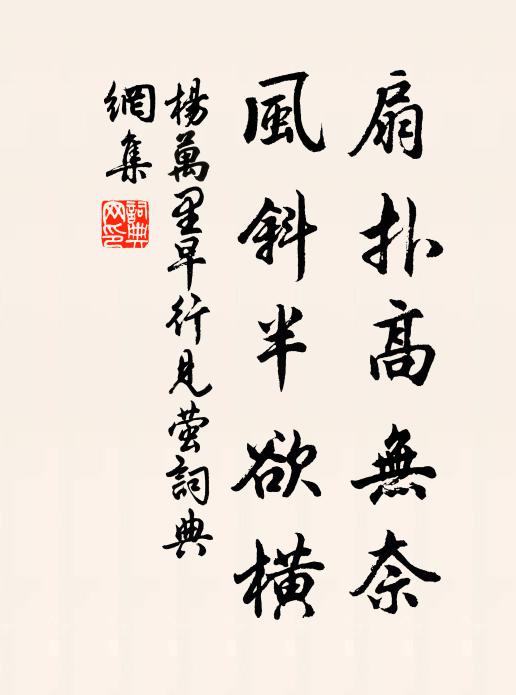 扇扑高無奈
風斜半欲橫
楊萬里早行見螢詞典
網集
詞典網印